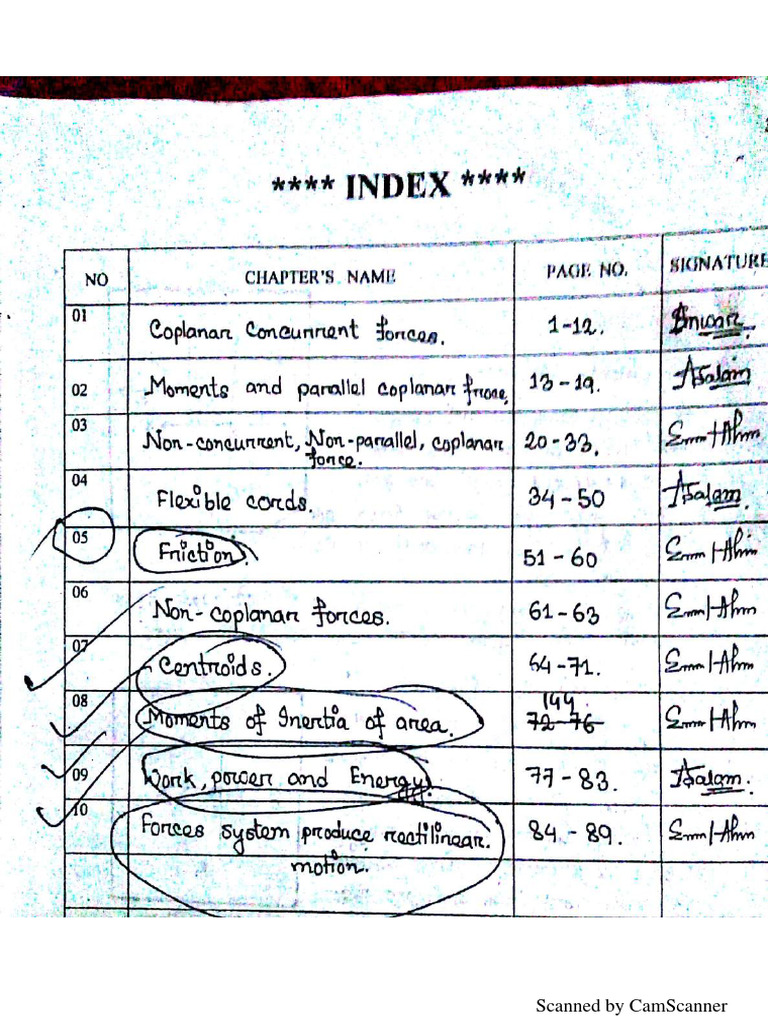 **** INDEX ****
NO CHAPTER'S NAME PAGE NO. SIGNATURE
01 Coplanar Concurrent forces. 1-12.
02 Moments and parallel coplanar 13-19. Asalam
03 Non-concurrent, Non-parallel, coplanar 20-33.
force.
04 Flexible cords. 34-50 Asalam
05 Friction. 51-60
06 Non-coplanar forces. 61-63
07 Centroids. 64-71.
144.
08 Moments of Inertia of area. 72-76
09 Work, power and Energy. 77-83. Asalam.
10 Forces system produce rectilinear. 84-89.
motion.
Scanned by CamScanner